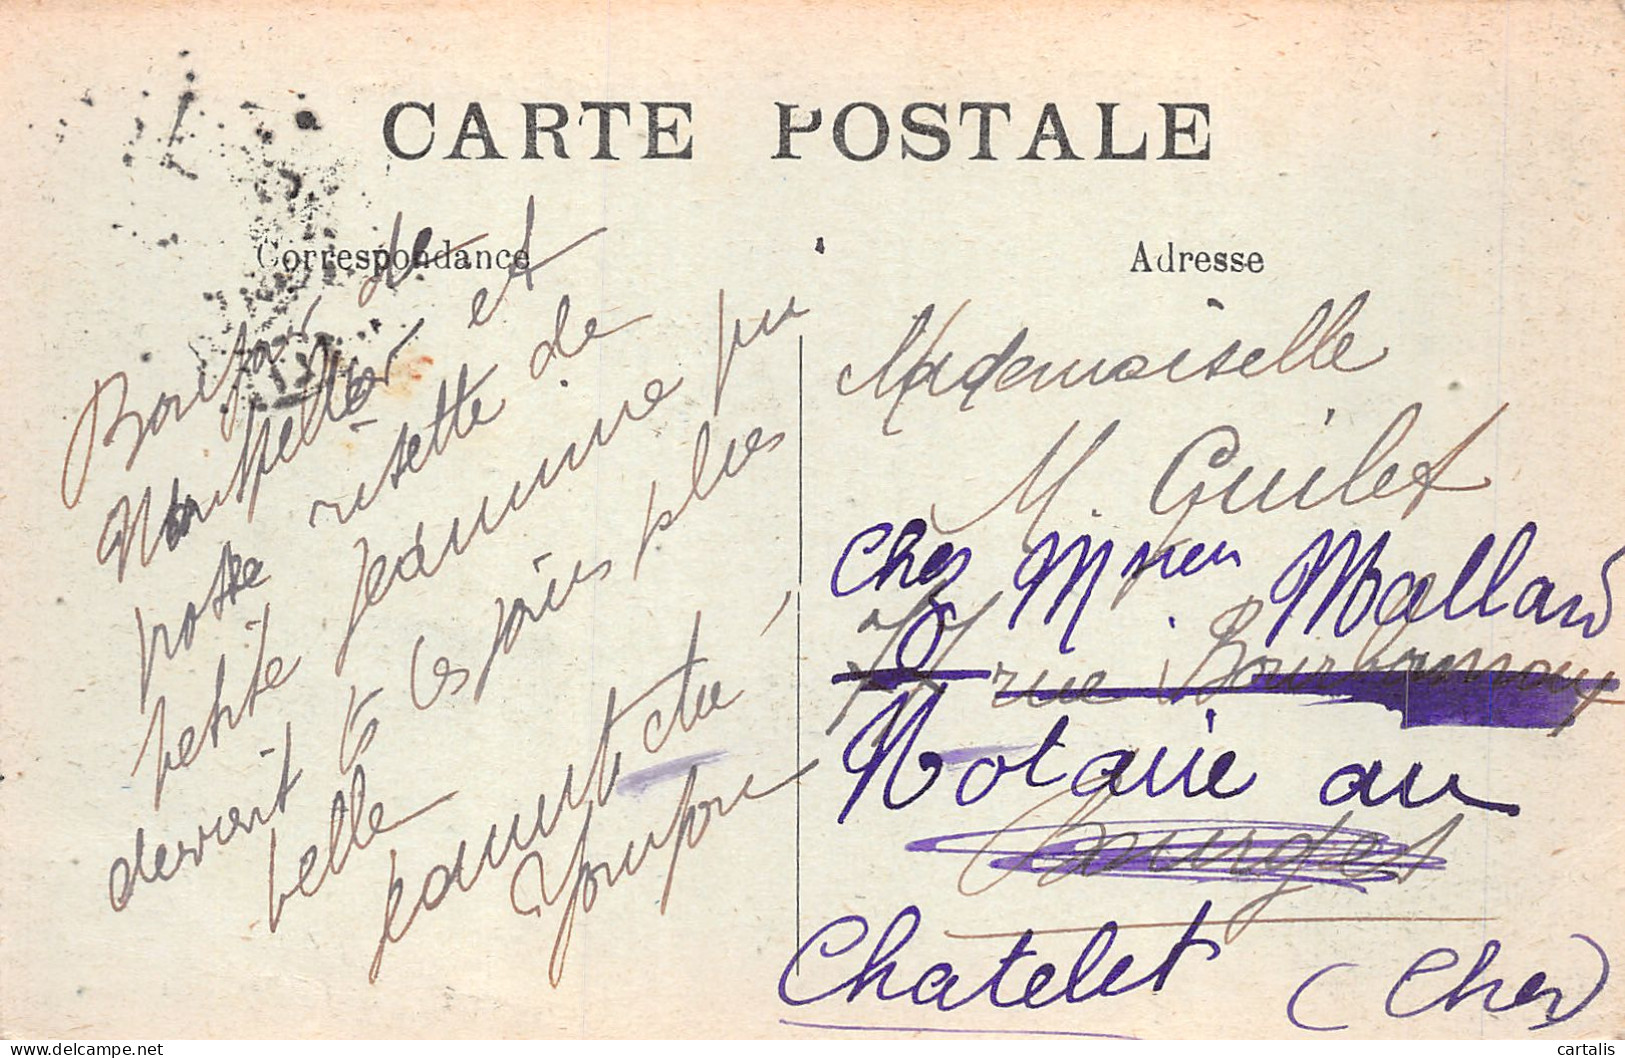 CARTE POSTALE
Correspondance
Adresse
Bonjour de
Montpellier et
grosse risette de
petite Jeannine qui
devient tous les jours plus
belle
Mademoiselle
M. Guilet
Chez M. Mallard
rue Bourbonnoux
Notaire au
Bourges
Chatelet (Cher)
delcampe.net
cartalis